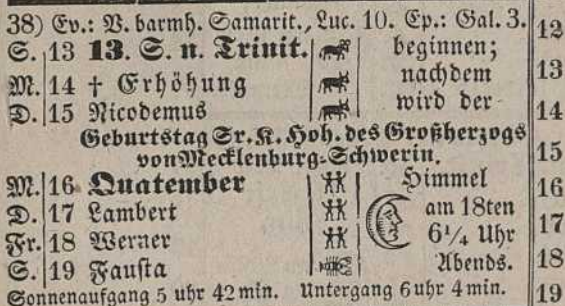 38) Ev.: V. barmh. Samarit., Luc. 10. Ep.: Gal. 3.
S. 13 13. S. n. Trinit. beginnen;
M. 14 † Erhöhung nachdem
D. 15 Nicodemus wird der
Geburtstag Sr. K. Hoh. des Großherzogs
von Mecklenburg-Schwerin.
M. 16 Quatember Himmel
D. 17 Lambert am 18ten
Fr. 18 Werner 6 1/4 Uhr
S. 19 Fausta Abends.
Sonnenaufgang 5 uhr 42 min. Untergang 6 uhr 4 min.
12
13
14
15
16
17
18
19